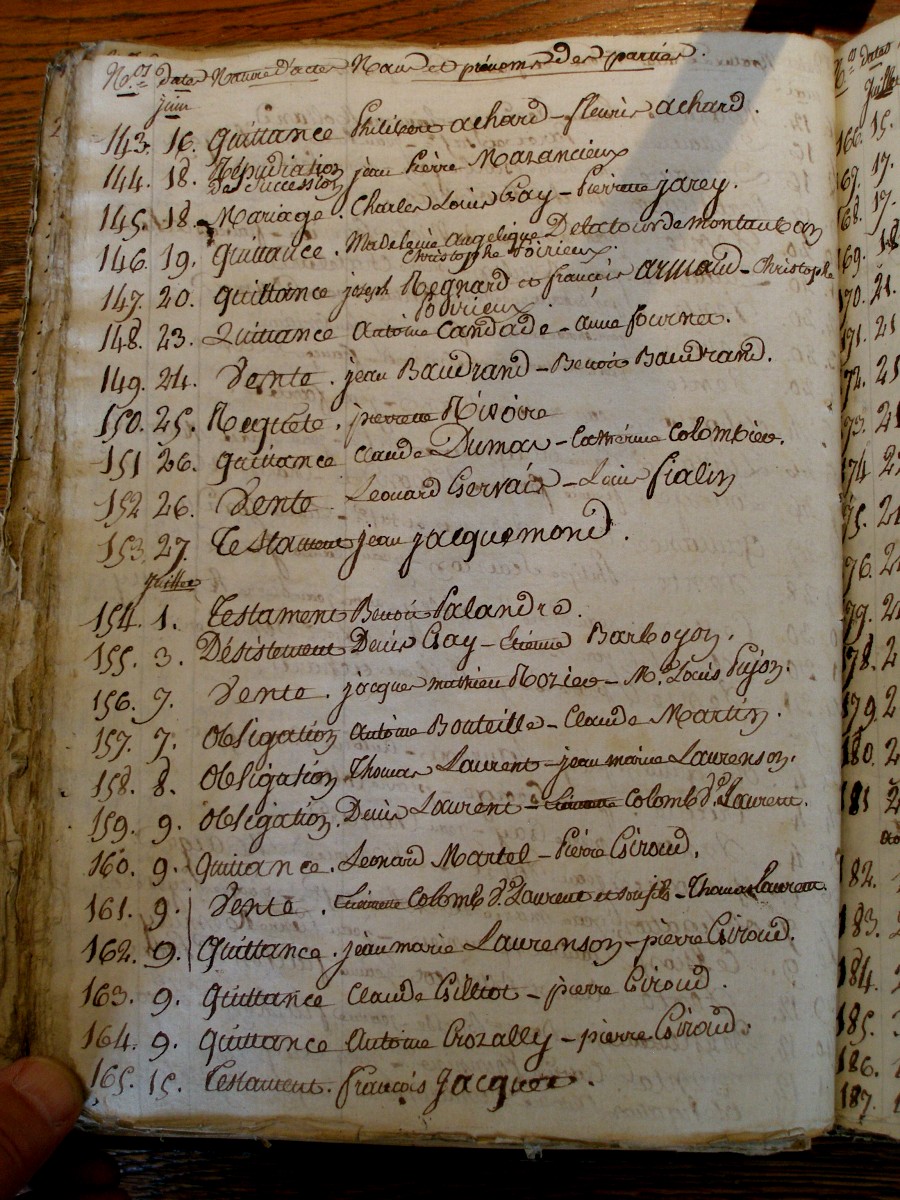 N.os date Nature d'actes Nom et prénoms des parties.
juin
143. 16. Quittance Philibert achard - fleurie achard.
144. 18. Répudiation de succession jean Pierre Mazancieux
145. 18. Mariage. Charles Louis Gay - Pierrette jarey.
146. 19. Quittance. Madeleine angélique Delatour de montauban
Christophe Poirieux.
147. 20. Quittance joseph Regnard et françois armand - Christophe
Poirieux.
148. 23. Quittance Antoine Candade - anne fournet.
149. 24. Vente. jean Baudrand - Benoit Baudrand.
150. 25. Requête. pierrette Rivoire
151 26. Quittance Claude Dumas - Catherine Colombier.
152 26. Vente Léonard Gervais - Louis fialin
153. 27. Testament jean jacquemond.
juillet
154. 1. Testament Benoit Palandre.
155. 3. Désistement Denis Gay - Etienne Barboyon.
156. 7. Vente. jacques mathieu Rozier - M.e Louis Pujon.
157. 7. Obligation Antoine Bouteille - Claude Martin.
158. 8. Obligation Thomas Laurent - jean marie Laurenson.
159. 9. Obligation. Denis Laurent - Colomb d.e Laurent.
160. 9. Quittance. Léonard Martel - Pierre Giroud.
161. 9. Vente. Colomb d.e Laurent et son fils - Thomas Laurent.
162. 9. Quittance. jean marie Laurenson - pierre Giroud.
163. 9. Quittance Claude Gilliot - pierre Giroud.
164. 9. Quittance Antoine Crozally - pierre Giroud.
165. 15. Testament. françois Jacquet.
N.os datte
juillet
166. 15.
167. 17.
168. 17.
169. 18
170. 21.
171. 21
172. 21
173. 21
174 22
175. 2
176. 2
179. 2
178. 2
179. 2
180. 2
181 2
182.
183.
184.
185.
186.
187.